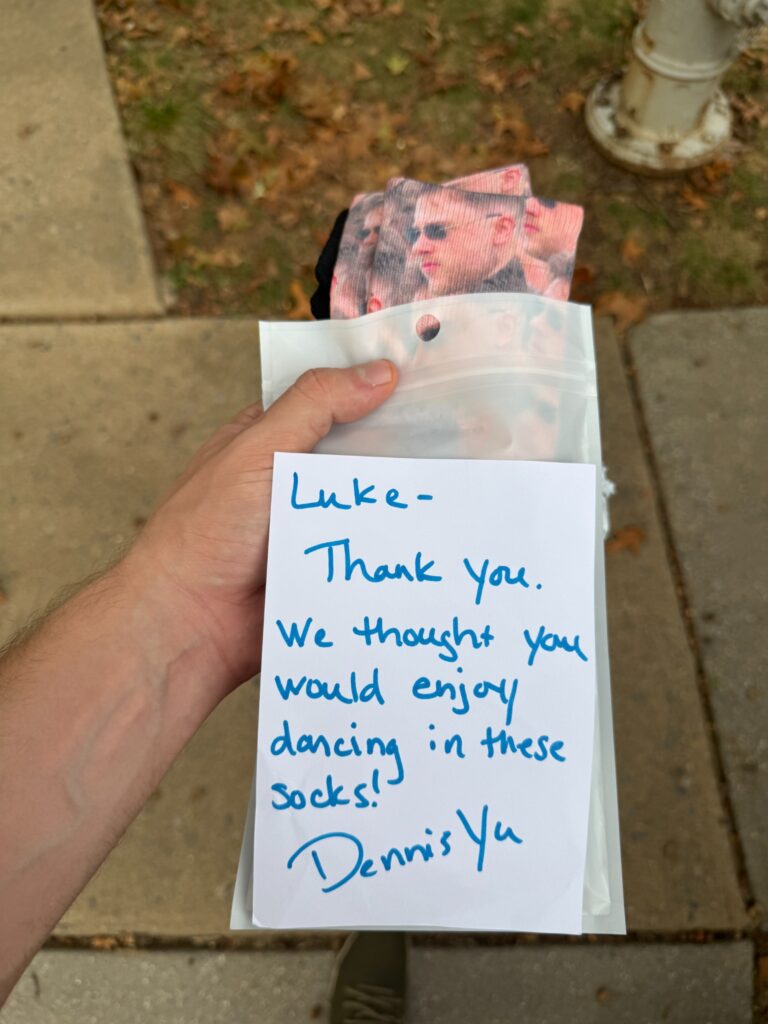 Luke-
Thank you.
We thought you
would enjoy
dancing in these
socks!
Dennis Yu